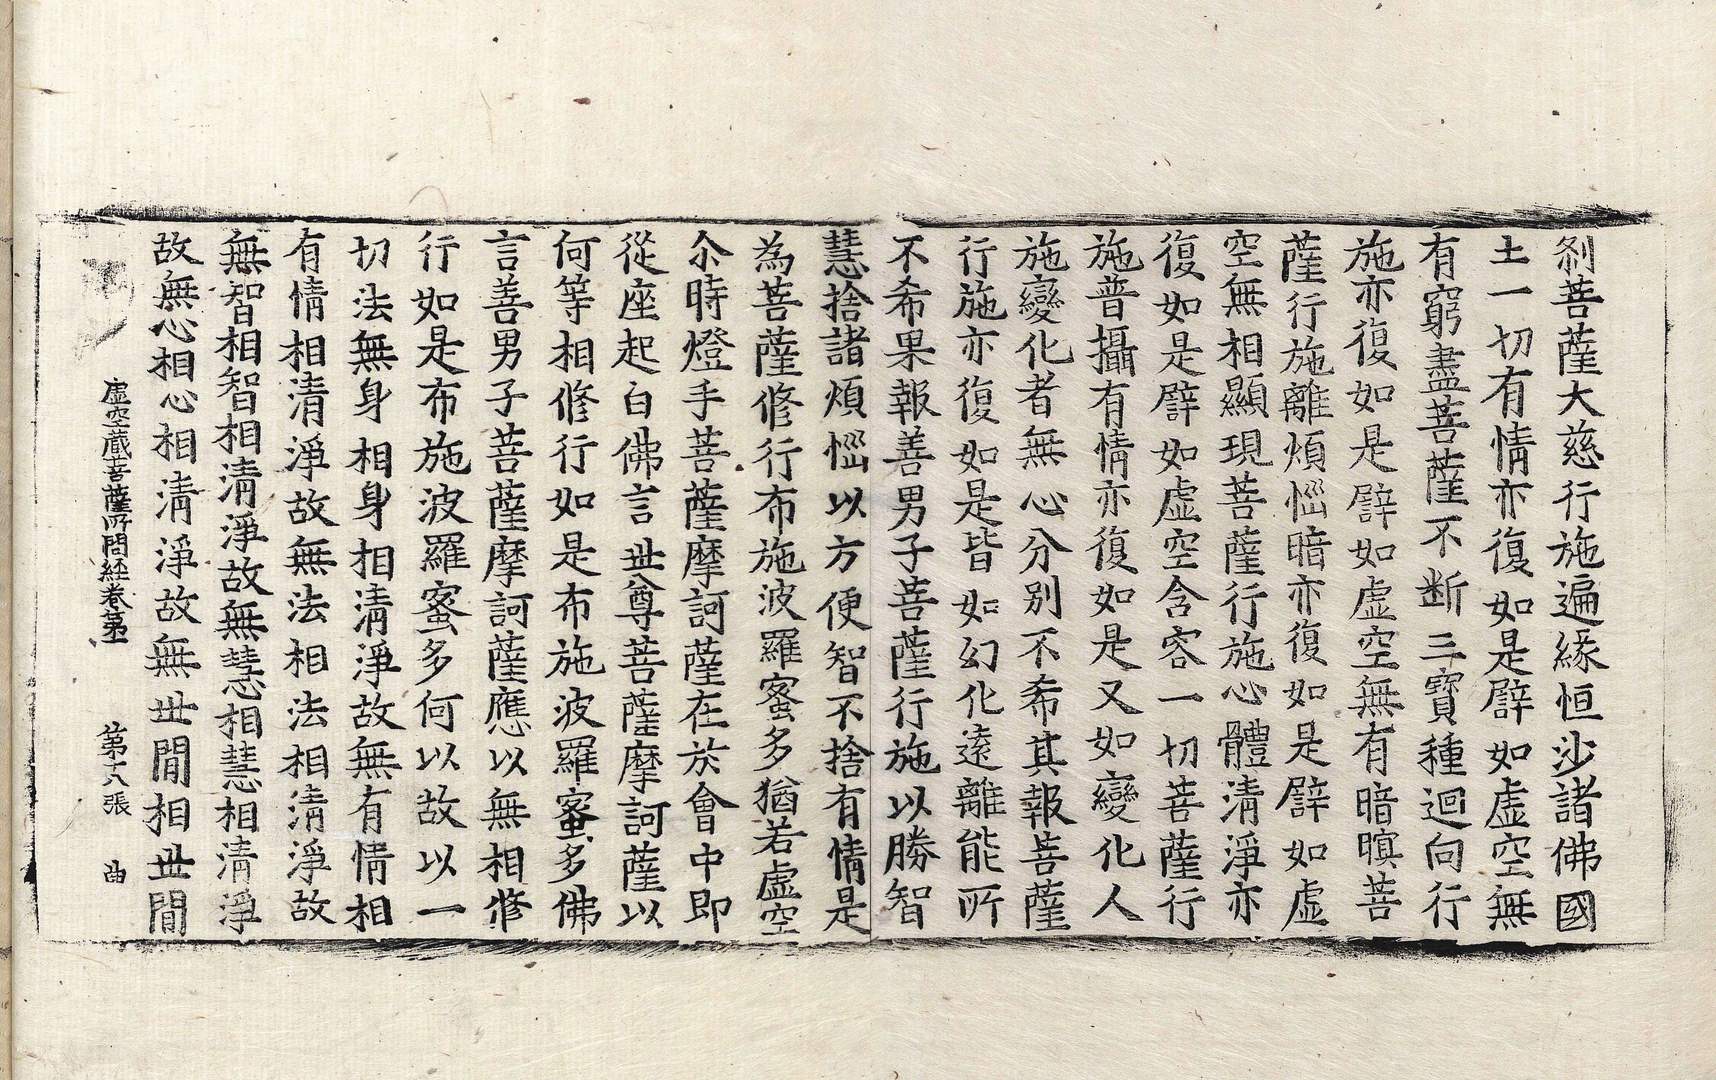 刹菩薩大慈行施遍緣恒沙諸佛國
土一切有情亦復如是譬如虛空無
有窮盡菩薩不断三寶種迴向行
施亦復如是譬如虛空無有暗暝菩
薩行施離煩惱暗亦復如是譬如虛
空無相顯現菩薩行施心體清淨亦
復如是譬如虛空含容一切菩薩行
施普攝有情亦復如是又如變化人
施變化者無心分別不希其報菩薩
行施亦復如是皆如幻化遠離能所
不希果報善男子菩薩行施以勝智
慧捨諸煩惱以方便智不捨有情是
為菩薩修行布施波羅蜜多猶若虛空
尒時燈手菩薩摩訶薩在於會中即
從座起白佛言世尊菩薩摩訶薩以
何等相修行如是布施波羅蜜多佛
言善男子菩薩摩訶薩應以無相修
行如是布施波羅蜜多何以故以一
切法無身相身相清淨故無有情相
有情相清淨故無法相法相清淨故
無智相智相清淨故無慧相慧相清淨
故無心相心相清淨故無世間相世間
虛空藏菩薩所問経卷第一 第十八張 曲